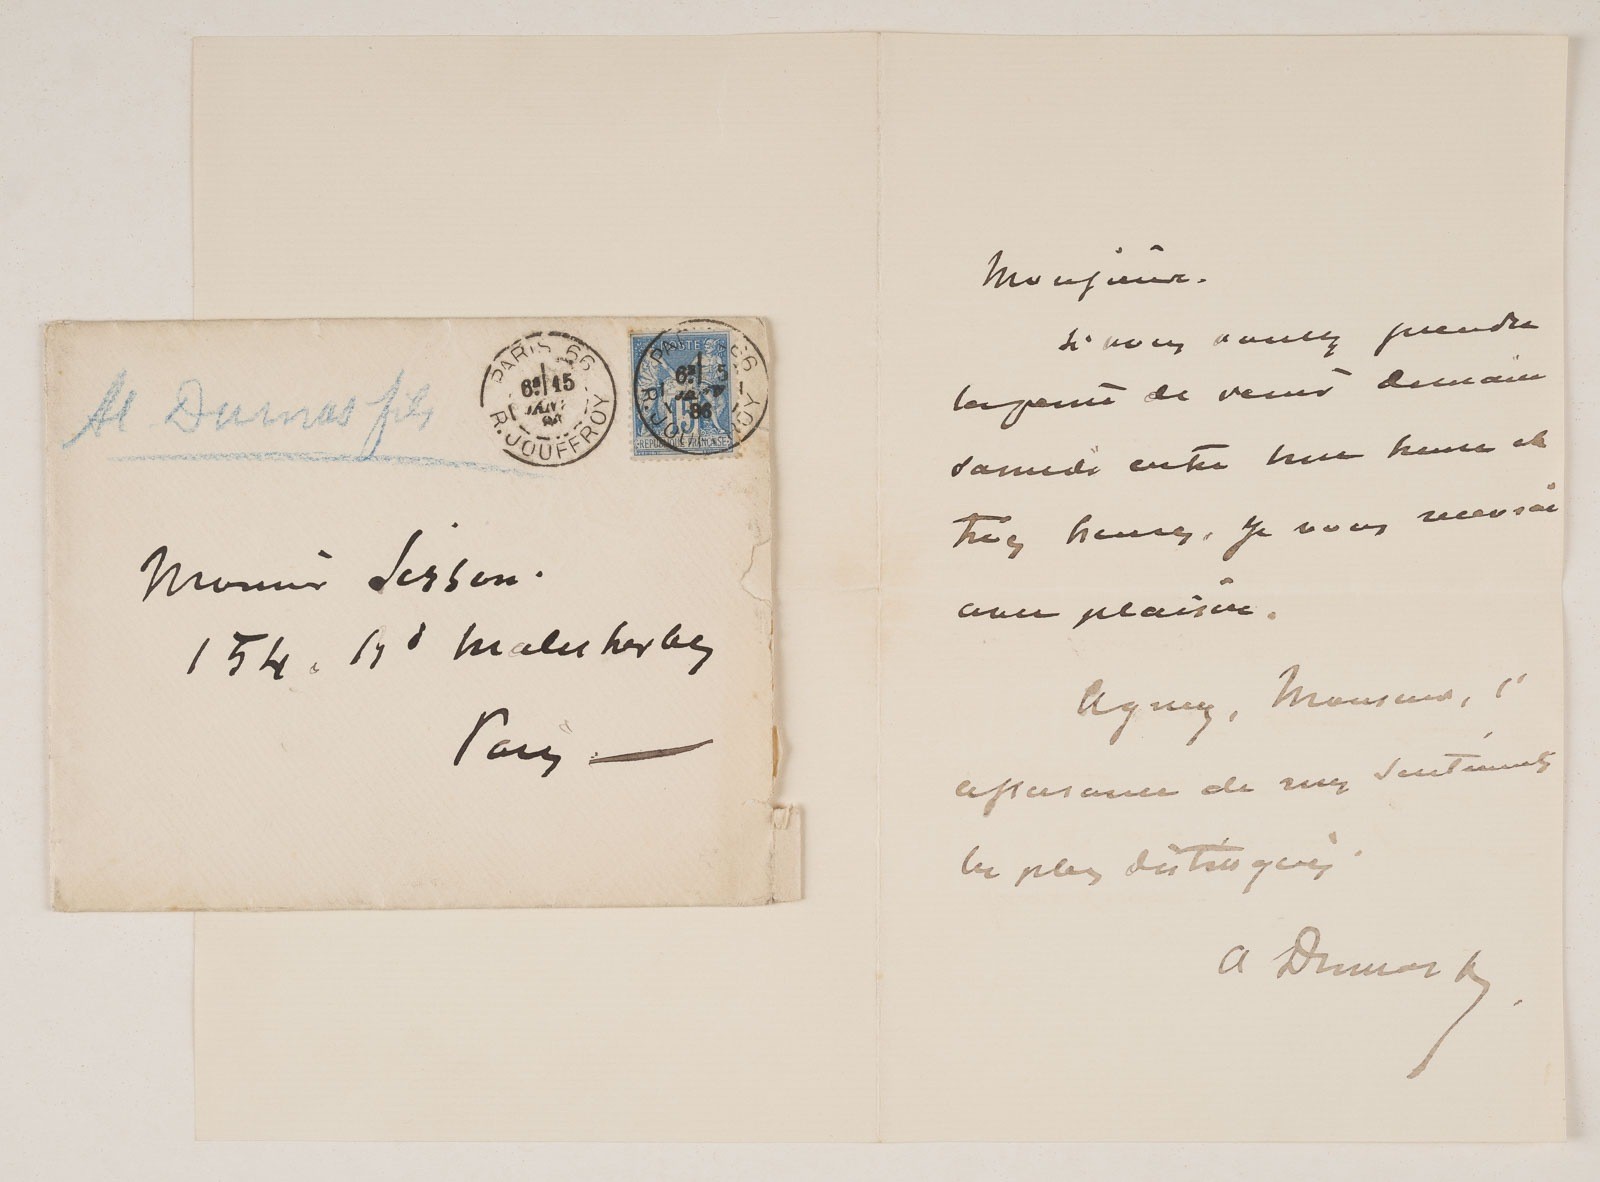 Al Dumas fils
PARIS 66
6E 15
JANV
86
R. JOUFFROY
POSTES
PARIS 66
6E 15
JANV
86
R. JOUFFROY
15
REPUBLIQUE FRANCAISE
Monsieur Sisson.
154. Bd Malesherbes
Paris
Monsieur.
Si vous voulez prendre
la peine de venir demain
samedi entre une heure et
trois heures, je vous recevrai
avec plaisir.
Agréez, Monsieur, l'
assurance de mes sentiments
les plus distingués.
A Dumas f